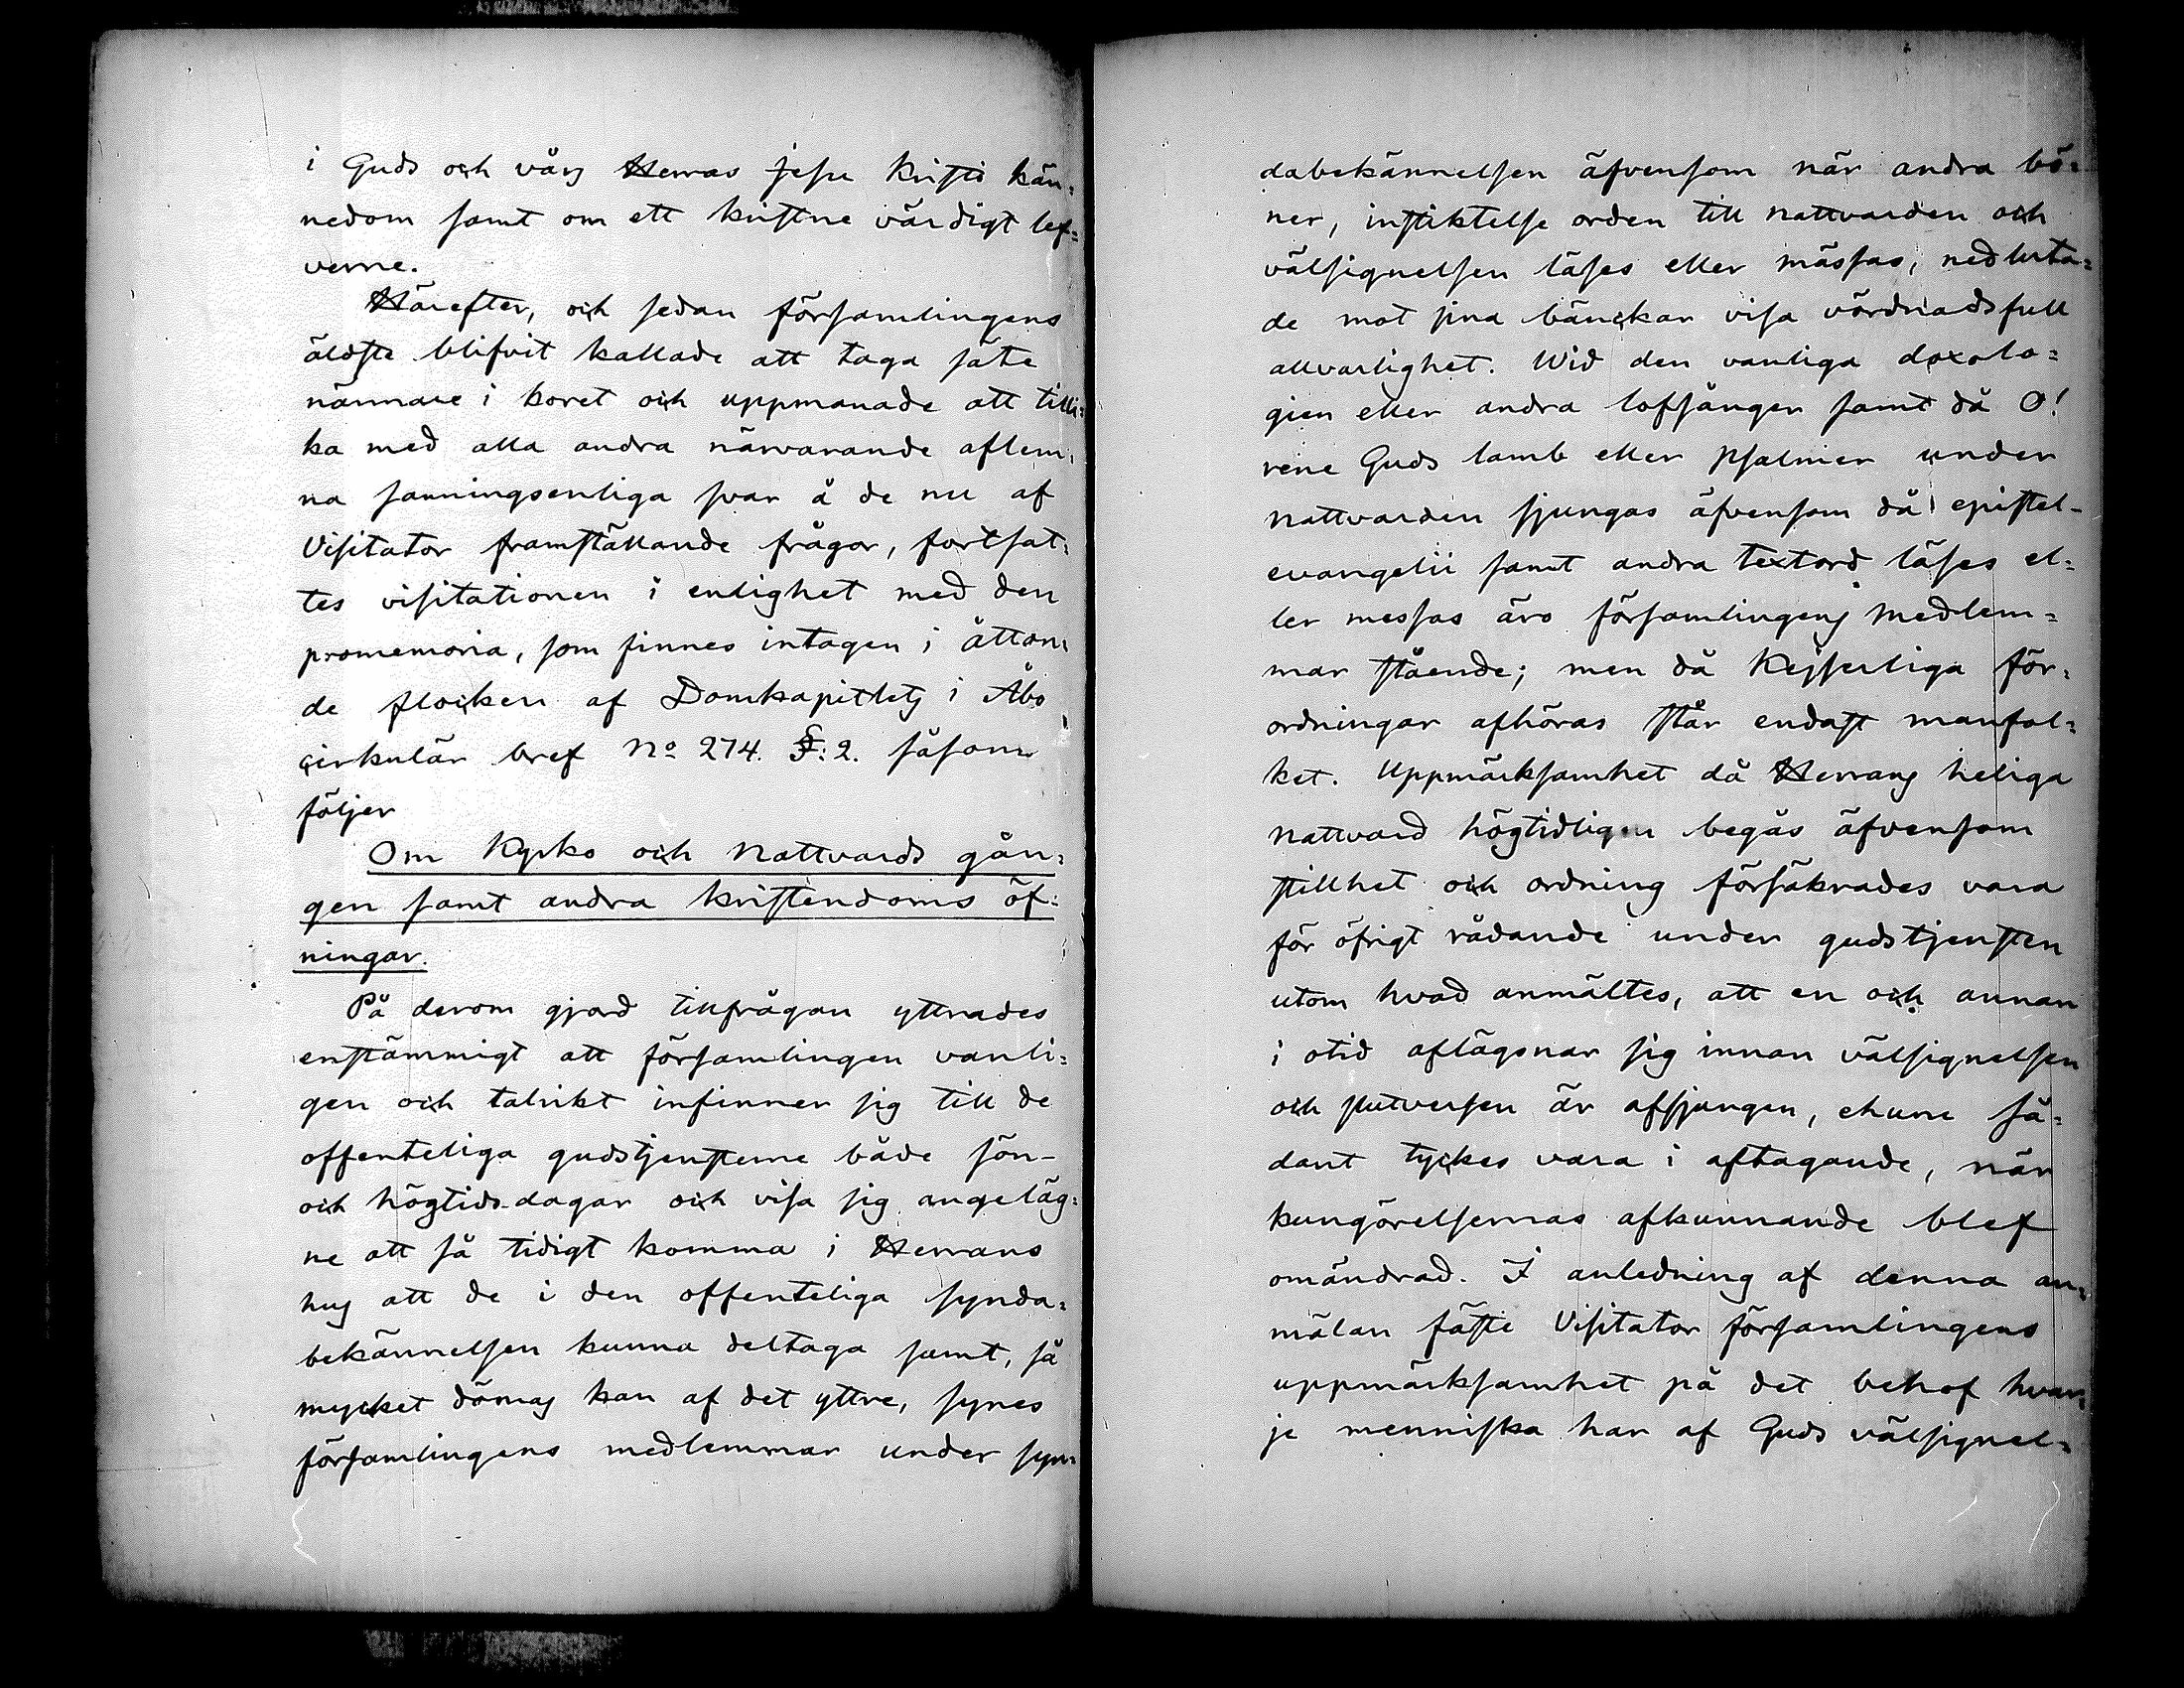 i Guds och vårs Herras Jesu Kristi kän=
nedom samt om ett kristne värdigt lef=
verne.
Härefter, och sedan församlingens
äldste blifvit kallade att taga säte
närmare i koret och uppmanade att tilli=
ka med alla andra närvarande aflem=
na sanningsenliga svar å de nu af
Visitator framställande frågor, fortsat=
tes visitationen i enlighet med den
promemoria, som finnes intagen i åtton=
de flocken af Domkapitlets i Åbo
cirkulär bref No 274. §: 2. såsom
följer
Om Kyrko och Nattvards gån=
gen samt andra kristendoms öf=
ningar.
På derom gjord tillfrågan yttrades
enstämmigt att församlingen vanli=
gen och talrikt infinner sig till de
offenteliga gudstjensterne både sön-
och högtids-dagar och visa sig angeläg=
ne att så tidigt komma i Herrans
hus att de i den offenteliga synda=
bekännelsen kunna deltaga samt, så
mycket dömas kan af det yttre, synes
församlingens medlemmar under syn=
dabekännelsen äfvensom när andra bö=
ner, instiktelse orden till nattvarden och
välsignelsen läses eller mässas, nedluta=
de mot sina bänckar visa vördnadsfull
allvarlighet. Wid den vanliga doxolo=
gien eller andra lofsånger samt då O!
rene Guds lamb eller psalmer under
nattvarden sjungas äfvensom då epistel-
evangelii samt andra textord läses el=
ler messas äro församlingens medlem=
mar stående; men då Kejserliga för=
ordningar afhöras står endast manfol=
ket. Uppmärksamhet då Herrans heliga
nattvard högtidligen begås äfvensom
stillhet och ordning försäkrades vara
för öfrigt rådande under gudstjensten
utom hvad anmältes, att en och annan
i otid aflägsnar sig innan välsignelsen
och slutversen är afsjungen, ehuru så=
dant tyckes vara i aftagande, när
kungörelsernas afkunnande blef
omändrad. I anledning af denna an=
mälan fäste Visitator församlingens
uppmärksamhet på det behof hvar=
je menniska har af Guds välsignel=